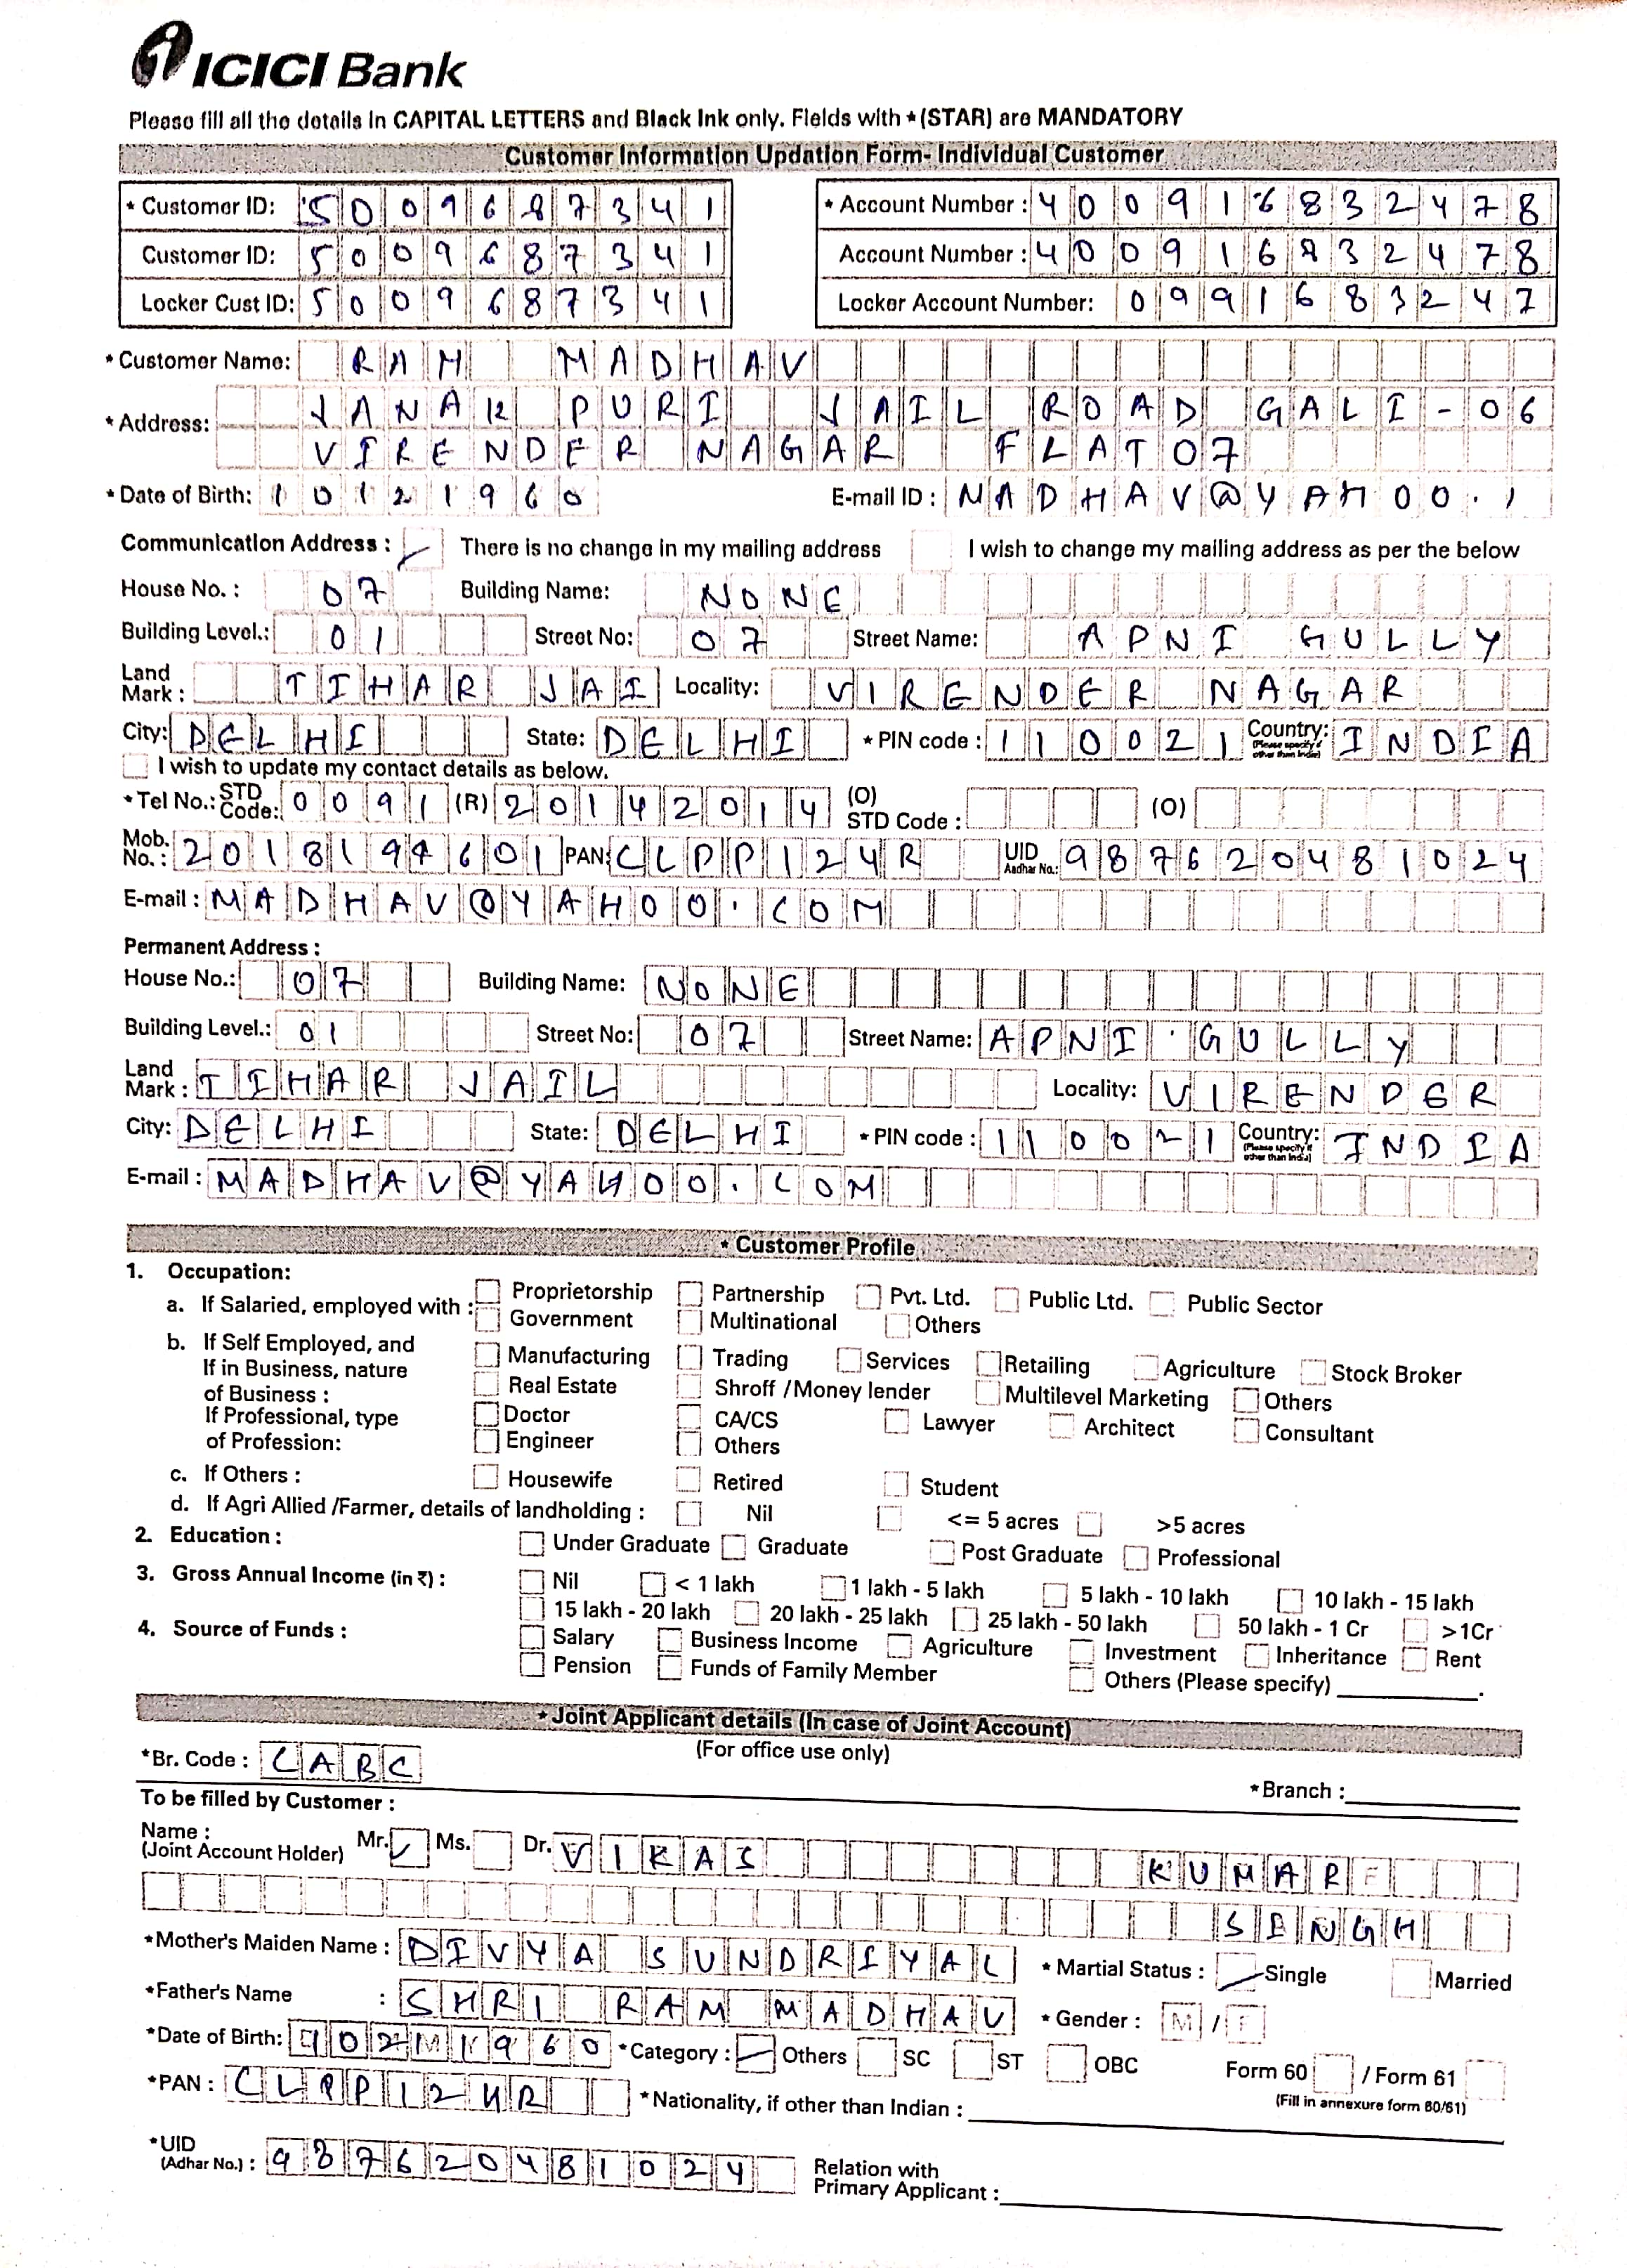 ICICI Bank
Please fill all the details in CAPITAL LETTERS and Black Ink only. Fields with *(STAR) are MANDATORY
Customer Information Updation Form- Individual Customer
* Customer ID: 5009687341 * Account Number : 4009168 32478
Customer ID: 5009687341 Account Number : 400916832478
Locker Cust ID: 5009687341 Locker Account Number: 0991683247
* Customer Name: RAM MADHAV
* Address: JANAK PURI JAIL ROAD GALI-06
VIRENDER NAGAR FLAT07
* Date of Birth: 10121960 E-mail ID : MADHAV@YAHOO.
Communication Address : There is no change in my mailing address I wish to change my mailing address as per the below
House No. : 07 Building Name: NONE
Building Level.: 01 Street No: 07 Street Name: APNI GULLY
Land Mark : TIHAR JAI Locality: VIRENDER NAGAR
City: DELHI State: DELHI * PIN code : 110021 Country: (Please specify if other than India) INDIA
I wish to update my contact details as below.
*Tel No.: STD Code: 0091 (R) 20142014 (O) STD Code : (O)
Mob. No. : 2018194601 PAN: CLPP124R UID Aadhar No.: 987620481024
E-mail : MADHAV@YAHOO.COM
Permanent Address :
House No.: 07 Building Name: NONE
Building Level.: 01 Street No: 07 Street Name: APNI GULLY
Land Mark : TIHAR JAIL Locality: VIRENDER
City: DELHI State: DELHI * PIN code : 110021 Country: (Please specify if other than India) INDIA
E-mail : MADHAV@YAHOO.COM
* Customer Profile
1. Occupation:
a. If Salaried, employed with : Proprietorship Partnership Pvt. Ltd. Public Ltd. Public Sector
Government Multinational Others
b. If Self Employed, and If in Business, nature of Business : Manufacturing Trading Services Retailing Agriculture Stock Broker
Real Estate Shroff /Money lender Multilevel Marketing Others
If Professional, type of Profession: Doctor CA/CS Lawyer Architect Consultant
Engineer Others
c. If Others : Housewife Retired Student
d. If Agri Allied /Farmer, details of landholding : Nil <= 5 acres >5 acres
2. Education : Under Graduate Graduate Post Graduate Professional
3. Gross Annual Income (in ₹) : Nil < 1 lakh 1 lakh - 5 lakh 5 lakh - 10 lakh 10 lakh - 15 lakh
15 lakh - 20 lakh 20 lakh - 25 lakh 25 lakh - 50 lakh 50 lakh - 1 Cr >1Cr
4. Source of Funds : Salary Business Income Agriculture Investment Inheritance Rent
Pension Funds of Family Member Others (Please specify)
* Joint Applicant details (In case of Joint Account)
(For office use only)
*Br. Code : CABC *Branch :
To be filled by Customer :
Name : (Joint Account Holder) Mr. Ms. Dr. VIKAS KUMAR
SINGH
*Mother's Maiden Name : DIVYA SUNDRIYAL * Martial Status : Single Married
*Father's Name : SHRI RAM MADHAV * Gender : M / F
*Date of Birth: *Category : Others SC ST OBC Form 60 / Form 61
(Fill in annexure form 60/61)
*PAN : CLPP124R *Nationality, if other than Indian :
*UID (Adhar No.) : 987620481024 Relation with Primary Applicant :